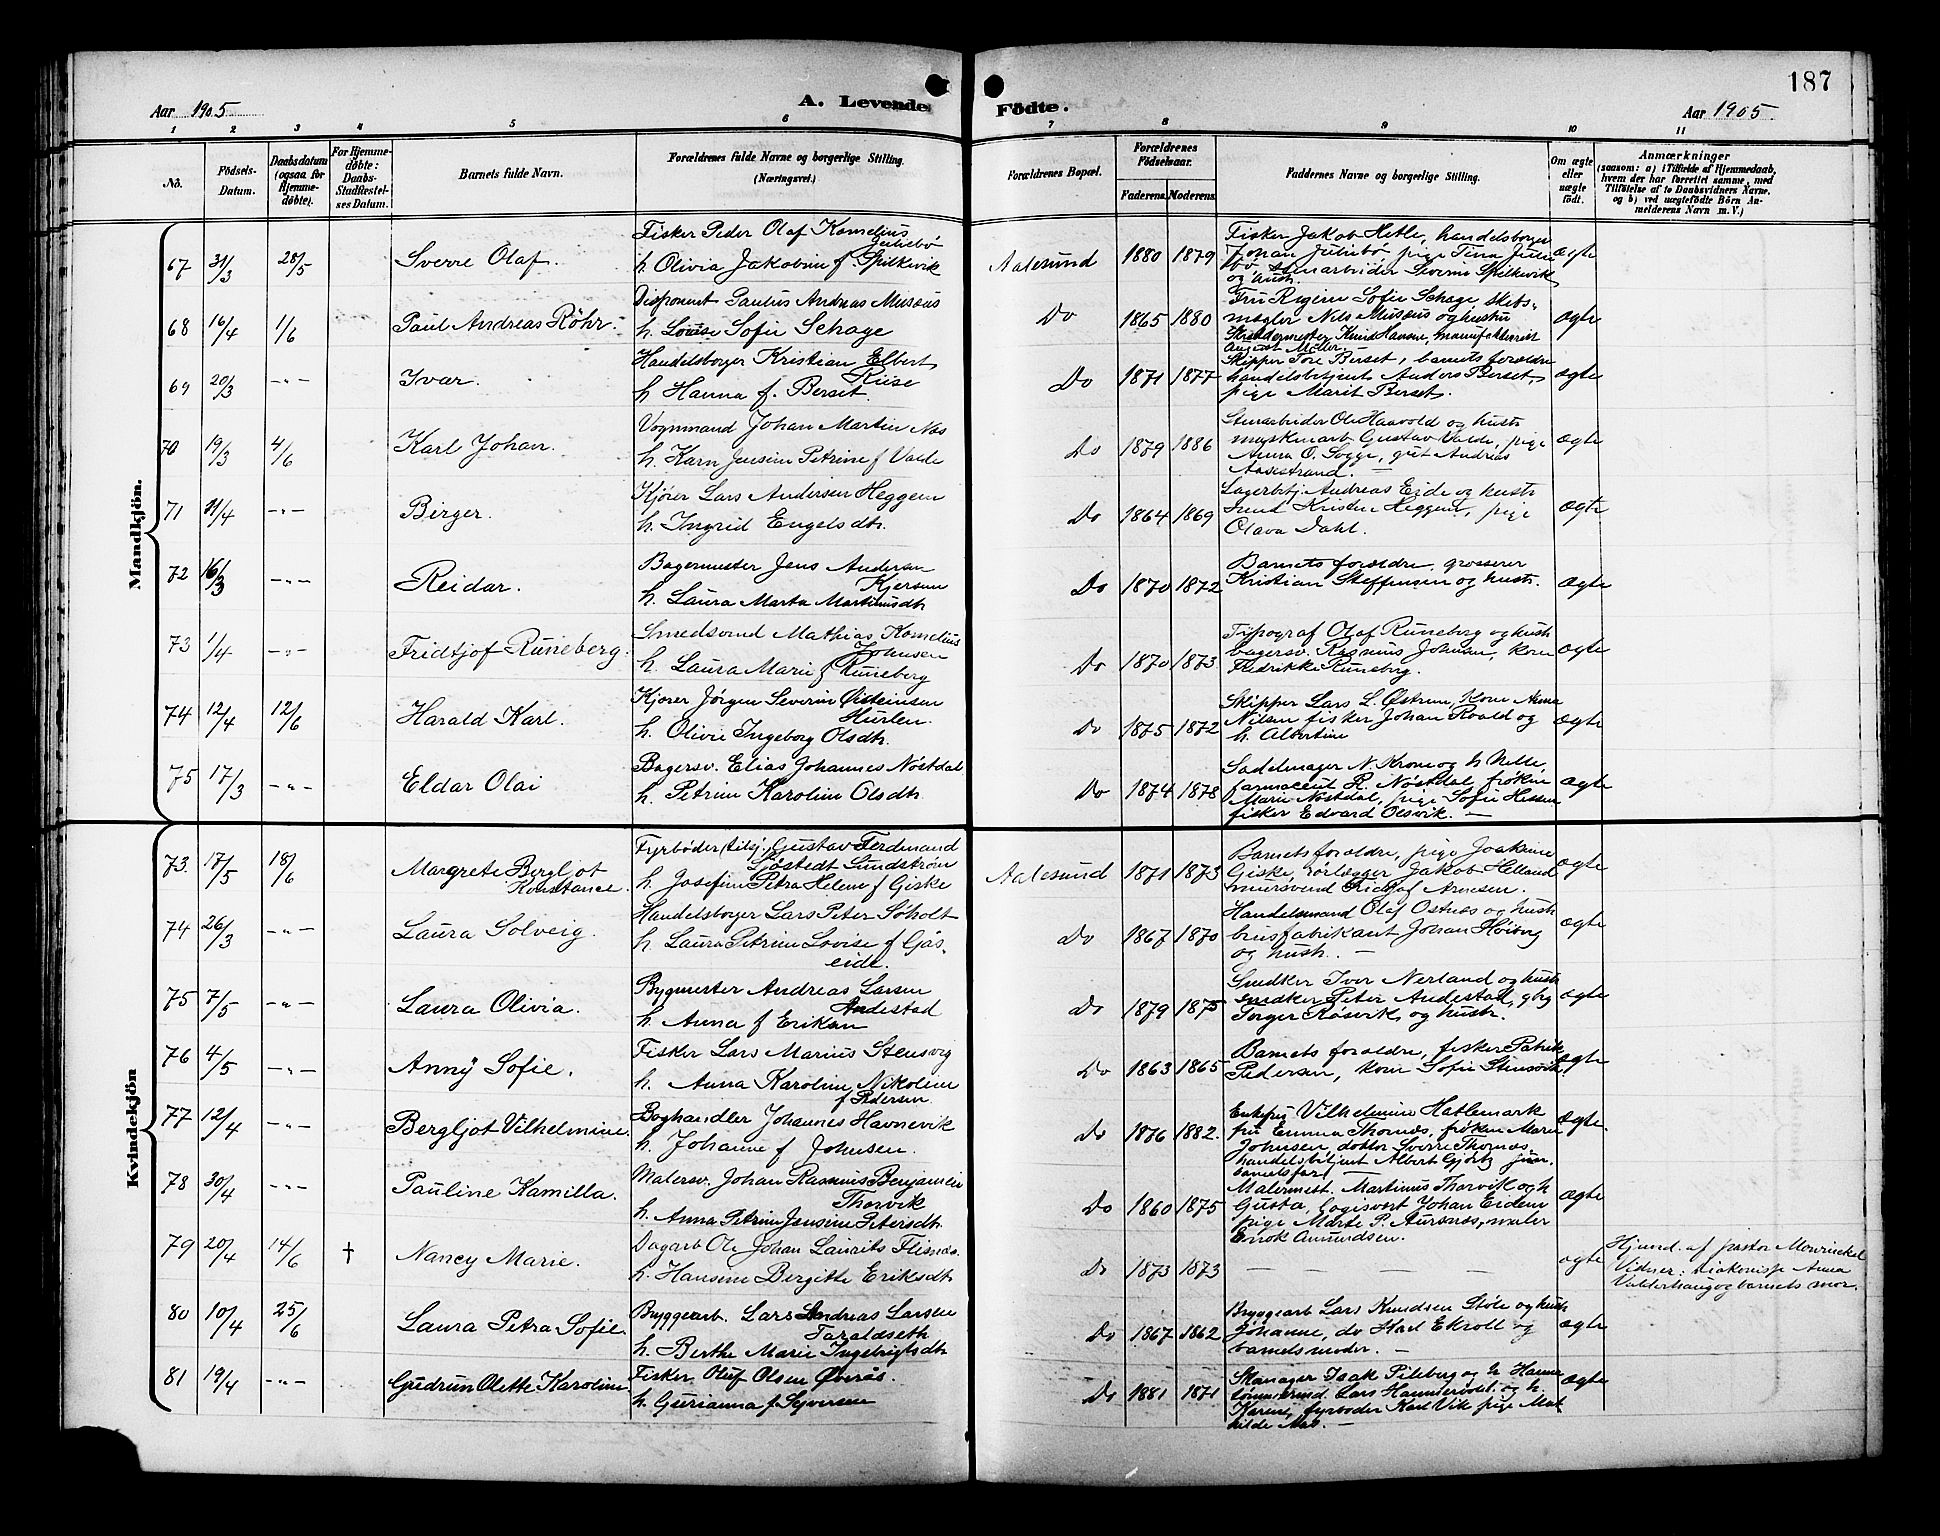 187
Aar 1905
A. Levende Födte.
Aar 1905
1 2 3 4 5 6 7 8 9 10 11
No.
Födsels-Datum.
Daabsdatum (ogsaa for Hjemme-döbte).
For Hjemme-döbte: Daabs-Stadfæstel-ses Datum.
Barnets fulde Navn.
Forældrenes fulde Navne og borgerlige Stilling. (Næringsvei.)
Forældrenes Bopæl.
Forældrenes Födselsaar.
Faderens. Moderens.
Faddernes Navne og borgerlige Stilling.
Om ægte eller uægte födt.
Anmærkninger
(saasom: a) i Tilfælde af Hjemmedaab, hvem der har forrettet samme, med Tilföielse af to Daabsvidners Navne, og b) ved uægtefödte Börn An-melderens Navn m. V.)
Mandkjön.
67 31/3 28/5 Sverre Olaf.
Fisker Peder Olaf Kornelius Juliebø
h. Olivia Jakobine f. Spilkevik
Aalesund 1880 1879
Fisker Jakob Hetle, handelsborger
Johan Juliebø, pige Tina Julie
bø, stenarbeider Severin Spilkevik
og hustr.
ægte
68 16/4 1/6 Paul Andreas Röhr.
Disponent Paulus Andreas Musæus
h. Louise Sofie Schage
Do 1865 1880
Fru Regine Sofie Schage, skibs-
mægler Nils Musæus og hustru
Skræddermester Knud Hansen, manufakturist
August Möller.
ægte
69 20/3 -"- Ivar.
Handelsborger Kristian Elbert Riise
h Hanna f. Berset.
Do 1871 1877
Skipper Tore Berset, barnets forældre
handelsbetjent Anders Berset,
pige Marit Berset.
ægte
70 19/3 4/6 Karl Johan.
Vognmand Johan Martin Næs
h. Karn Jensine Petrine f Valde
Do 1879 1886
Stenarbeider Ole Haavold og hustr
maskinarb Gustav Valde, pige
Anna O. Sogge, gut Andreas
Aasestrand.
ægte
71 -"- Birger.
Kjører Lars Andersen Heggem
h. Ingrid Engelsdtr.
Do 1864 1869
Lagerbetj. Andreas Eide og hustr
Heggem, pige
Olava Dahl.
ægte
72 16/3 -"- Reidar.
Bagermester Jens Andersen Kjersem
h. Laura Marta Martinusdtr
Do 1870 1872
Barnets forældre, grosserer
Kristian Steffensen og hustr.
ægte
73 1/4 -"- Fridtjof Runeberg.
Smedsvend Mathias Kornelius Johnsen
h. Laura Marie f Runeberg
Do 1870 1873
Typograf Olaf Runeberg og hustr
bagersv. Rasmus Johnsen, kone
Fredrikke Runeberg.
ægte
74 12/4 12/6 Harald Karl.
Kjører Jørgen Severin Øisteinsen Hurlen.
h. Olivie Ingeborg Olsdtr.
Do 1875 1872
Skipper Lars L. Østrem, kone Anna
Nilsen fisker Johan Roald og
h. Albertine
ægte
75 17/3 -"- Eldar Olai
Bagersv. Elias Johannes Nöstdal
h. Petrine Karoline Olsdtr.
Do 1874 1878
Sadelmager N. Krone og h Nelle,
farmaceut R. Nöstdal, frøken
Marie Nöstdal, pige Sofie Hessen
fisker Edvard Olsvik.
ægte
Kvindekjön
73. 17/5 18/6 Margrete Bergljot Konstance.
Fyrbøder (tilsj.) Gustav Ferdinand
Sjöstedt Sundström
h. Josefine Petra Helene f Giske
Aalesund 1871 1873
Barnets forældre, pige Joakime
Giske, rörlægger Jakob Helland
mursvend Fridtjof Arnesen.
ægte
74 26/3 -"- Laura Solveig.
Handelsborger Lars Peter Søholt
h. Laura Petrine Lovise f Gås-
eide.
Do 1867 1870
Handelsmand Olaf Ostnæs og hustr
brusfabrikant Johan Hoiberg
og hustr.
ægte
75 7/5 -"- Laura Olivia.
Bygmester Andreas Larsen Andestad
h. Anna f Eriksen
Do 1879 1875
Snedker Iver Nerland og hustr
snedker Peter Andestad, gbrg
Torger Røsvik, og hustr.
ægte
76 4/5 -"- Anny Sofie.
Fisker Lars Marius Stensvig
h. Anna Karoline Nikoline
f Pedersen.
Do 1863 1865
Barnets forældre, fisker Patrik
Pedersen, kone Sofie Stensvik.
ægte
77 12/4 -"- Bergljot Vilhelmine.
Boghandler Johannes Havnevik
h. Johanne f Johnsen.
Do 1876 1882.
Enkefru Vilhelmine Hatlemark
fru Emma Thornæs, frøken Marie
Johnsen, doktor Sverre Thornæs
handelsbetjent Albert Gjørtz jun.
barnets far
ægte.
78 30/4 -"- Pauline Kamilla.
Malersv. Johan Rasmus Benjamin Thorvik
h. Anna Petrine Jensine Petersdtr.
Do 1860 1875
Malermest. Martinus Thorvik og h
Gusta, logisvert Johan Eidem
pige Marte P. Aursnæs, maler
Enok Amundsen.
ægte
79 20/4 14/6 † Nancy Marie.
Dagarb Ole Johan Laurits Flisnæs.
h. Hansine Bergitte Eriksdtr
Do 1873 1873 — — — —
ægte
Hjemd. af pastor Monrinckel
Vidner: diakonisse Anna
Valderhaug og barnets mor.
80 10/4 25/6 Laura Petra Sofie.
Bryggearb. Lars Andreas Larsen Taraldseth
h. Berthe Marie Ingebrigtsdtr
Do 1867 1862
Bryggearb Lars Knudsen Støle og hustr
Johanne, do Karl Ekroll og
barnets moder.
ægte
81 19/4 -"- Gudrun Olette Karoline
Fisker Oluf Olsen Øverås.
h. Gurianna f. Syversen
Do 1881 1871
Skomager Isak Pileberg og h Hanna
tømmermd. Lars Hammervold og h.
Karen, fyrbøder Karl Vik pige Mat
hilde Næs.
ægte